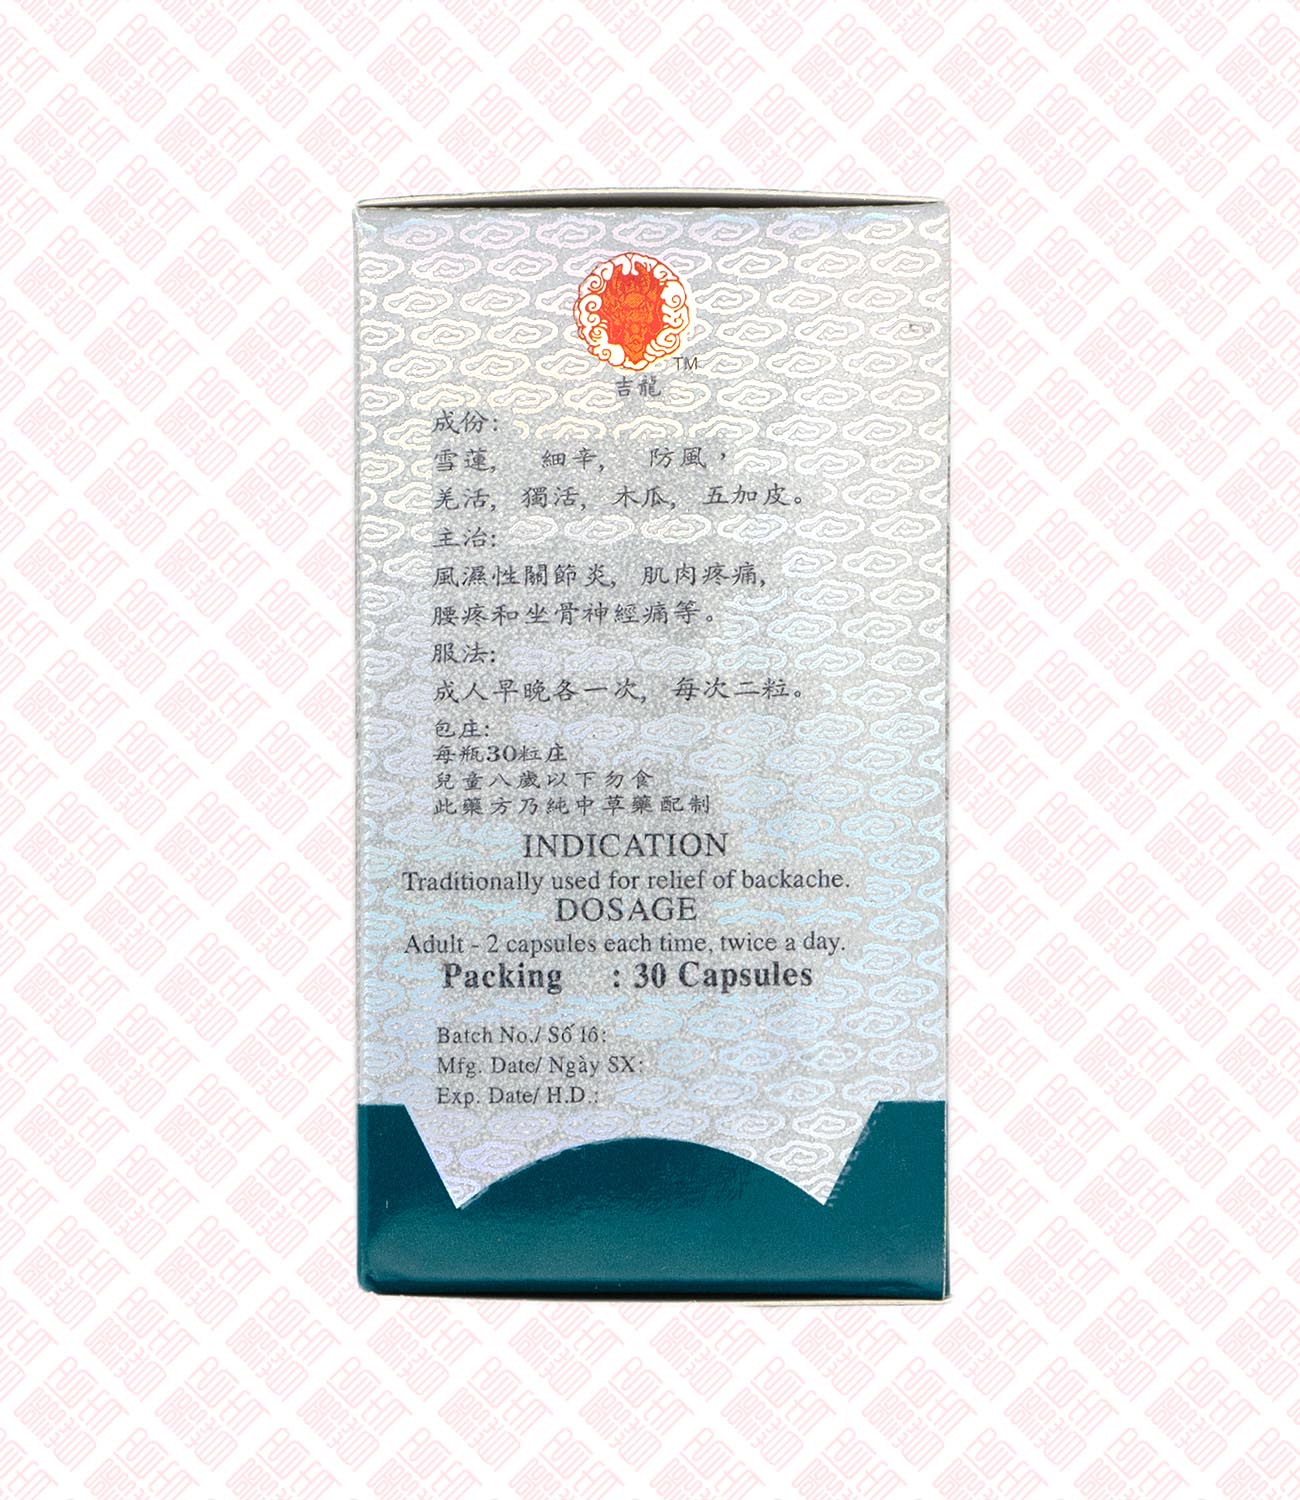 TM
吉龍
成份:
雪蓮, 細辛, 防風,
羌活, 獨活, 木瓜, 五加皮。
主治:
風濕性關節炎, 肌肉疼痛,
腰疼和坐骨神經痛等。
服法:
成人早晚各一次, 每次二粒。
包庄:
每瓶30粒庄
兒童八歲以下勿食
此藥方乃純中草藥配制
INDICATION
Traditionally used for relief of backache.
DOSAGE
Adult - 2 capsules each time, twice a day.
Packing : 30 Capsules
Batch No./ Số lô:
Mfg. Date/ Ngày SX:
Exp. Date/ H.D.: